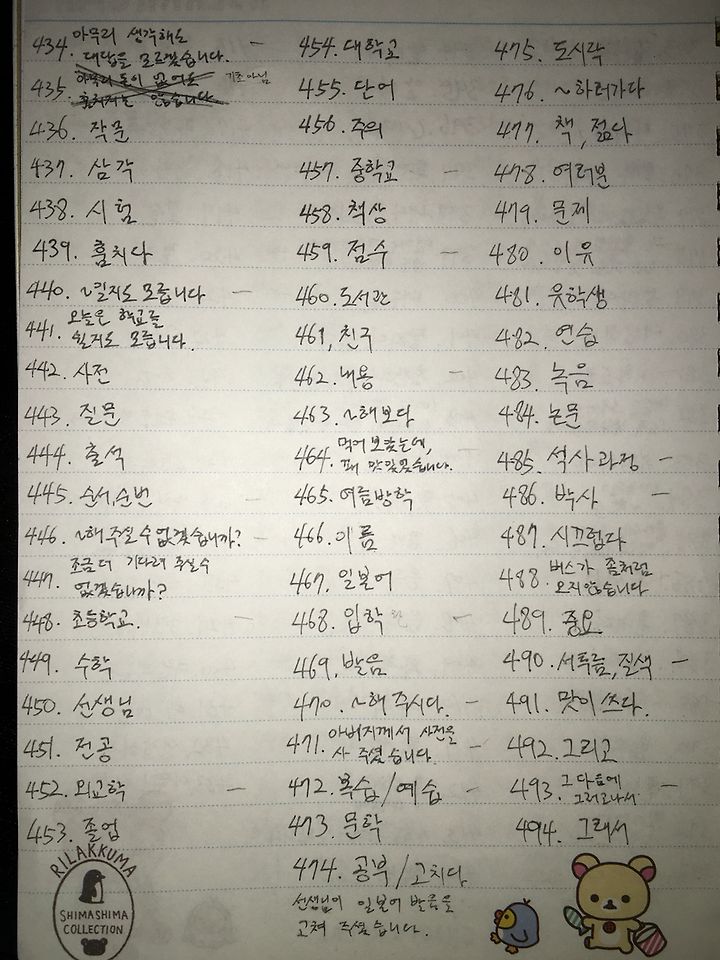 434. 아무리 생각해도
대답을 모르겠습니다. -
435. 아무리 돈이 없어도 기조 아님
훔치지는 않습니다
436. 작문
437. 삼각
438. 시험
439. 훔치다
440. ~릴지도 모릅니다 -
441. 오늘은 학교를
쉴지도 모릅니다.
442. 사전
443. 질문
444. 출석
445. 순서, 순번 -
446. ~해 주실 수 없겠습니까? -
447. 조금 더 기다려 주실 수
없겠습니까?
448. 초등학교. -
449. 수학
450. 선생님
451. 전공
452. 외교학 -
453. 졸업
RILAKKUMA
SHIMASHIMA
COLLECTION
454. 대학교
455. 단어
456. 주의
457. 중학교 -
458. 책상
459. 점수 -
460. 도서관
461. 친구
462. 내용 -
463. ~해보다
464. 먹어 보았는데,
꽤 맛있었습니다.
465. 여름방학
466. 이름
467. 일본어
468. 입학 -
469. 발음
470. ~해 주시다. -
471. 아버지께서 사전을
사 주셨습니다. -
472. 복습/예습 -
473. 문학
474. 공부/고치다
선생님이 일본어 발음을
고쳐 주셨습니다.
475. 도시락
476. ~하러가다
477. 책, 젊다
478. 여러분
479. 문제
480. 이유
481. 유학생
482. 연습
483. 녹음
484. 논문
485. 석사과정 -
486. 박사 -
487. 시끄럽다
488. 버스가 좀처럼
오지 않습니다
489. 중요
490. 서투름, 질색 -
491. 맛이 쓰다.
492. 그리고
493. 그 다음에
그러고나서 -
494. 그래서